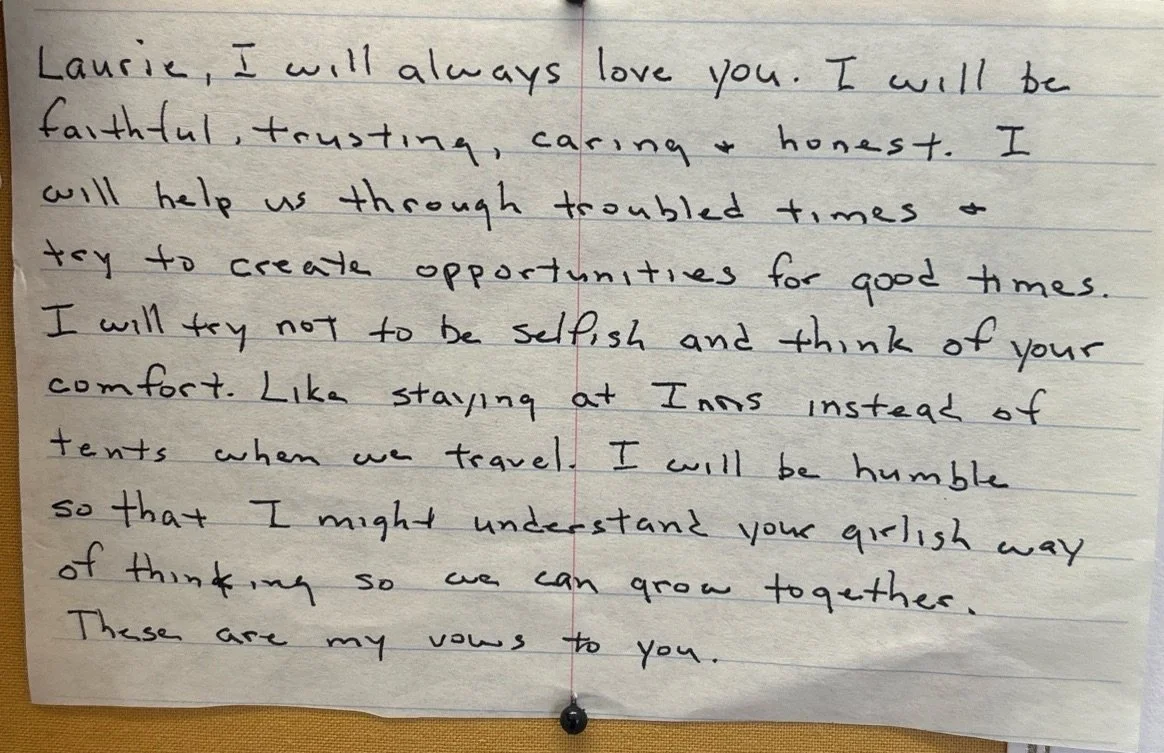 Laurie, I will always love you. I will be
faithful, trusting, caring + honest. I
will help us through troubled times +
try to create opportunities for good times.
I will try not to be selfish and think of your
comfort. Like staying at Inns instead of
tents when we travel. I will be humble
so that I might understand your girlish way
of thinking so we can grow together.
These are my vows to you.